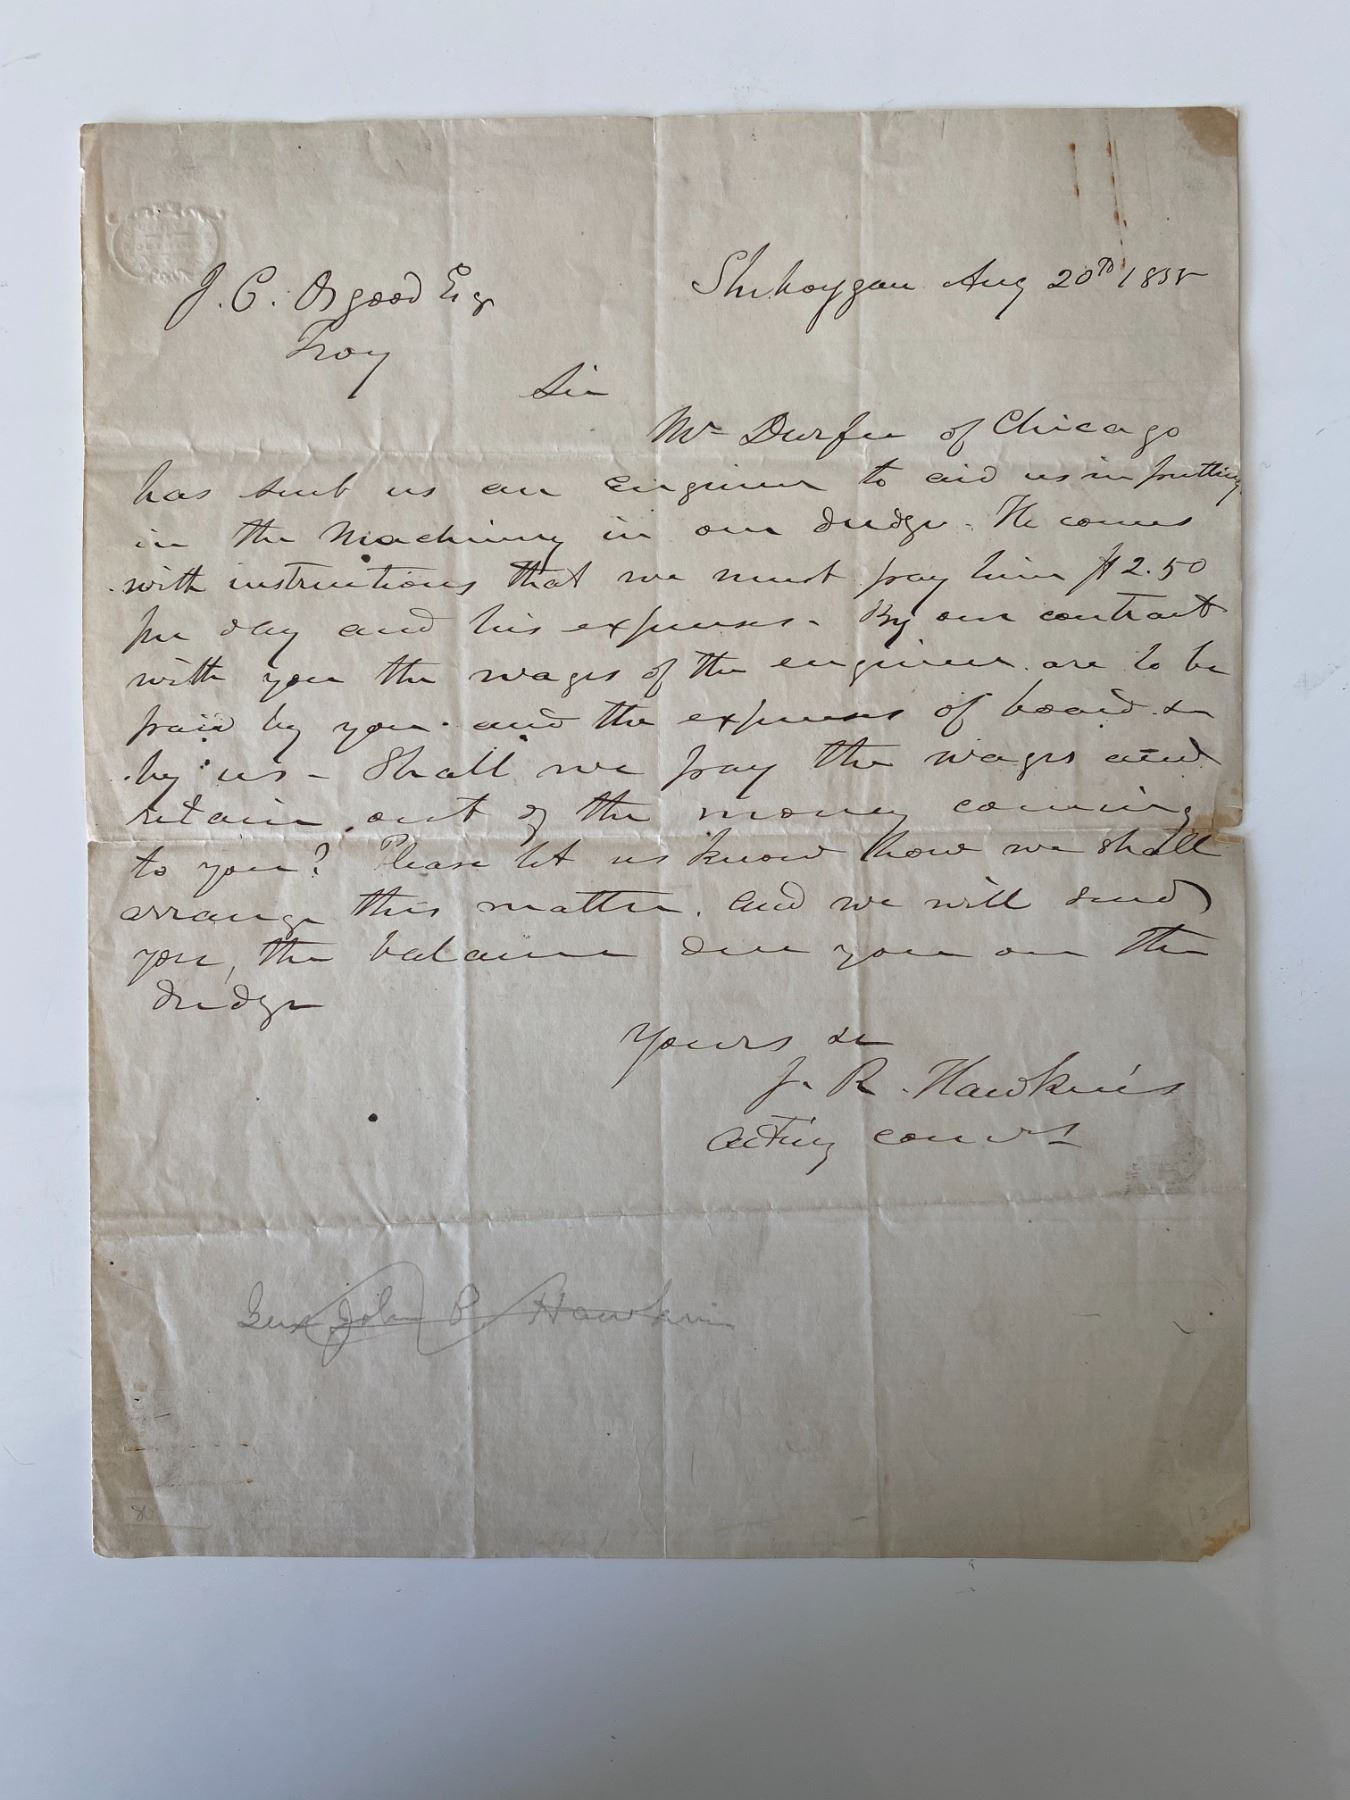 J. C. Osgood Esq
Sheboygan Aug 20th 1855
Troy
Sir
Mr Durfee of Chicago
has sent us an Engineer to aid us in putting
in the Machinery in our dredge. He comes
with instructions that we must pay him $2.50
per day and his expenses. By our contract
with you the wages of the engineer are to be
paid by you and the expenses of board &c
by us - Shall we pay the wages and
retain out of the money coming
to you? Please let us know how we shall
arrange this matter. and we will send
you, the balance due you on the
dredge
Yours &c
J. R. Hawkins
Acting
John R Hawkins